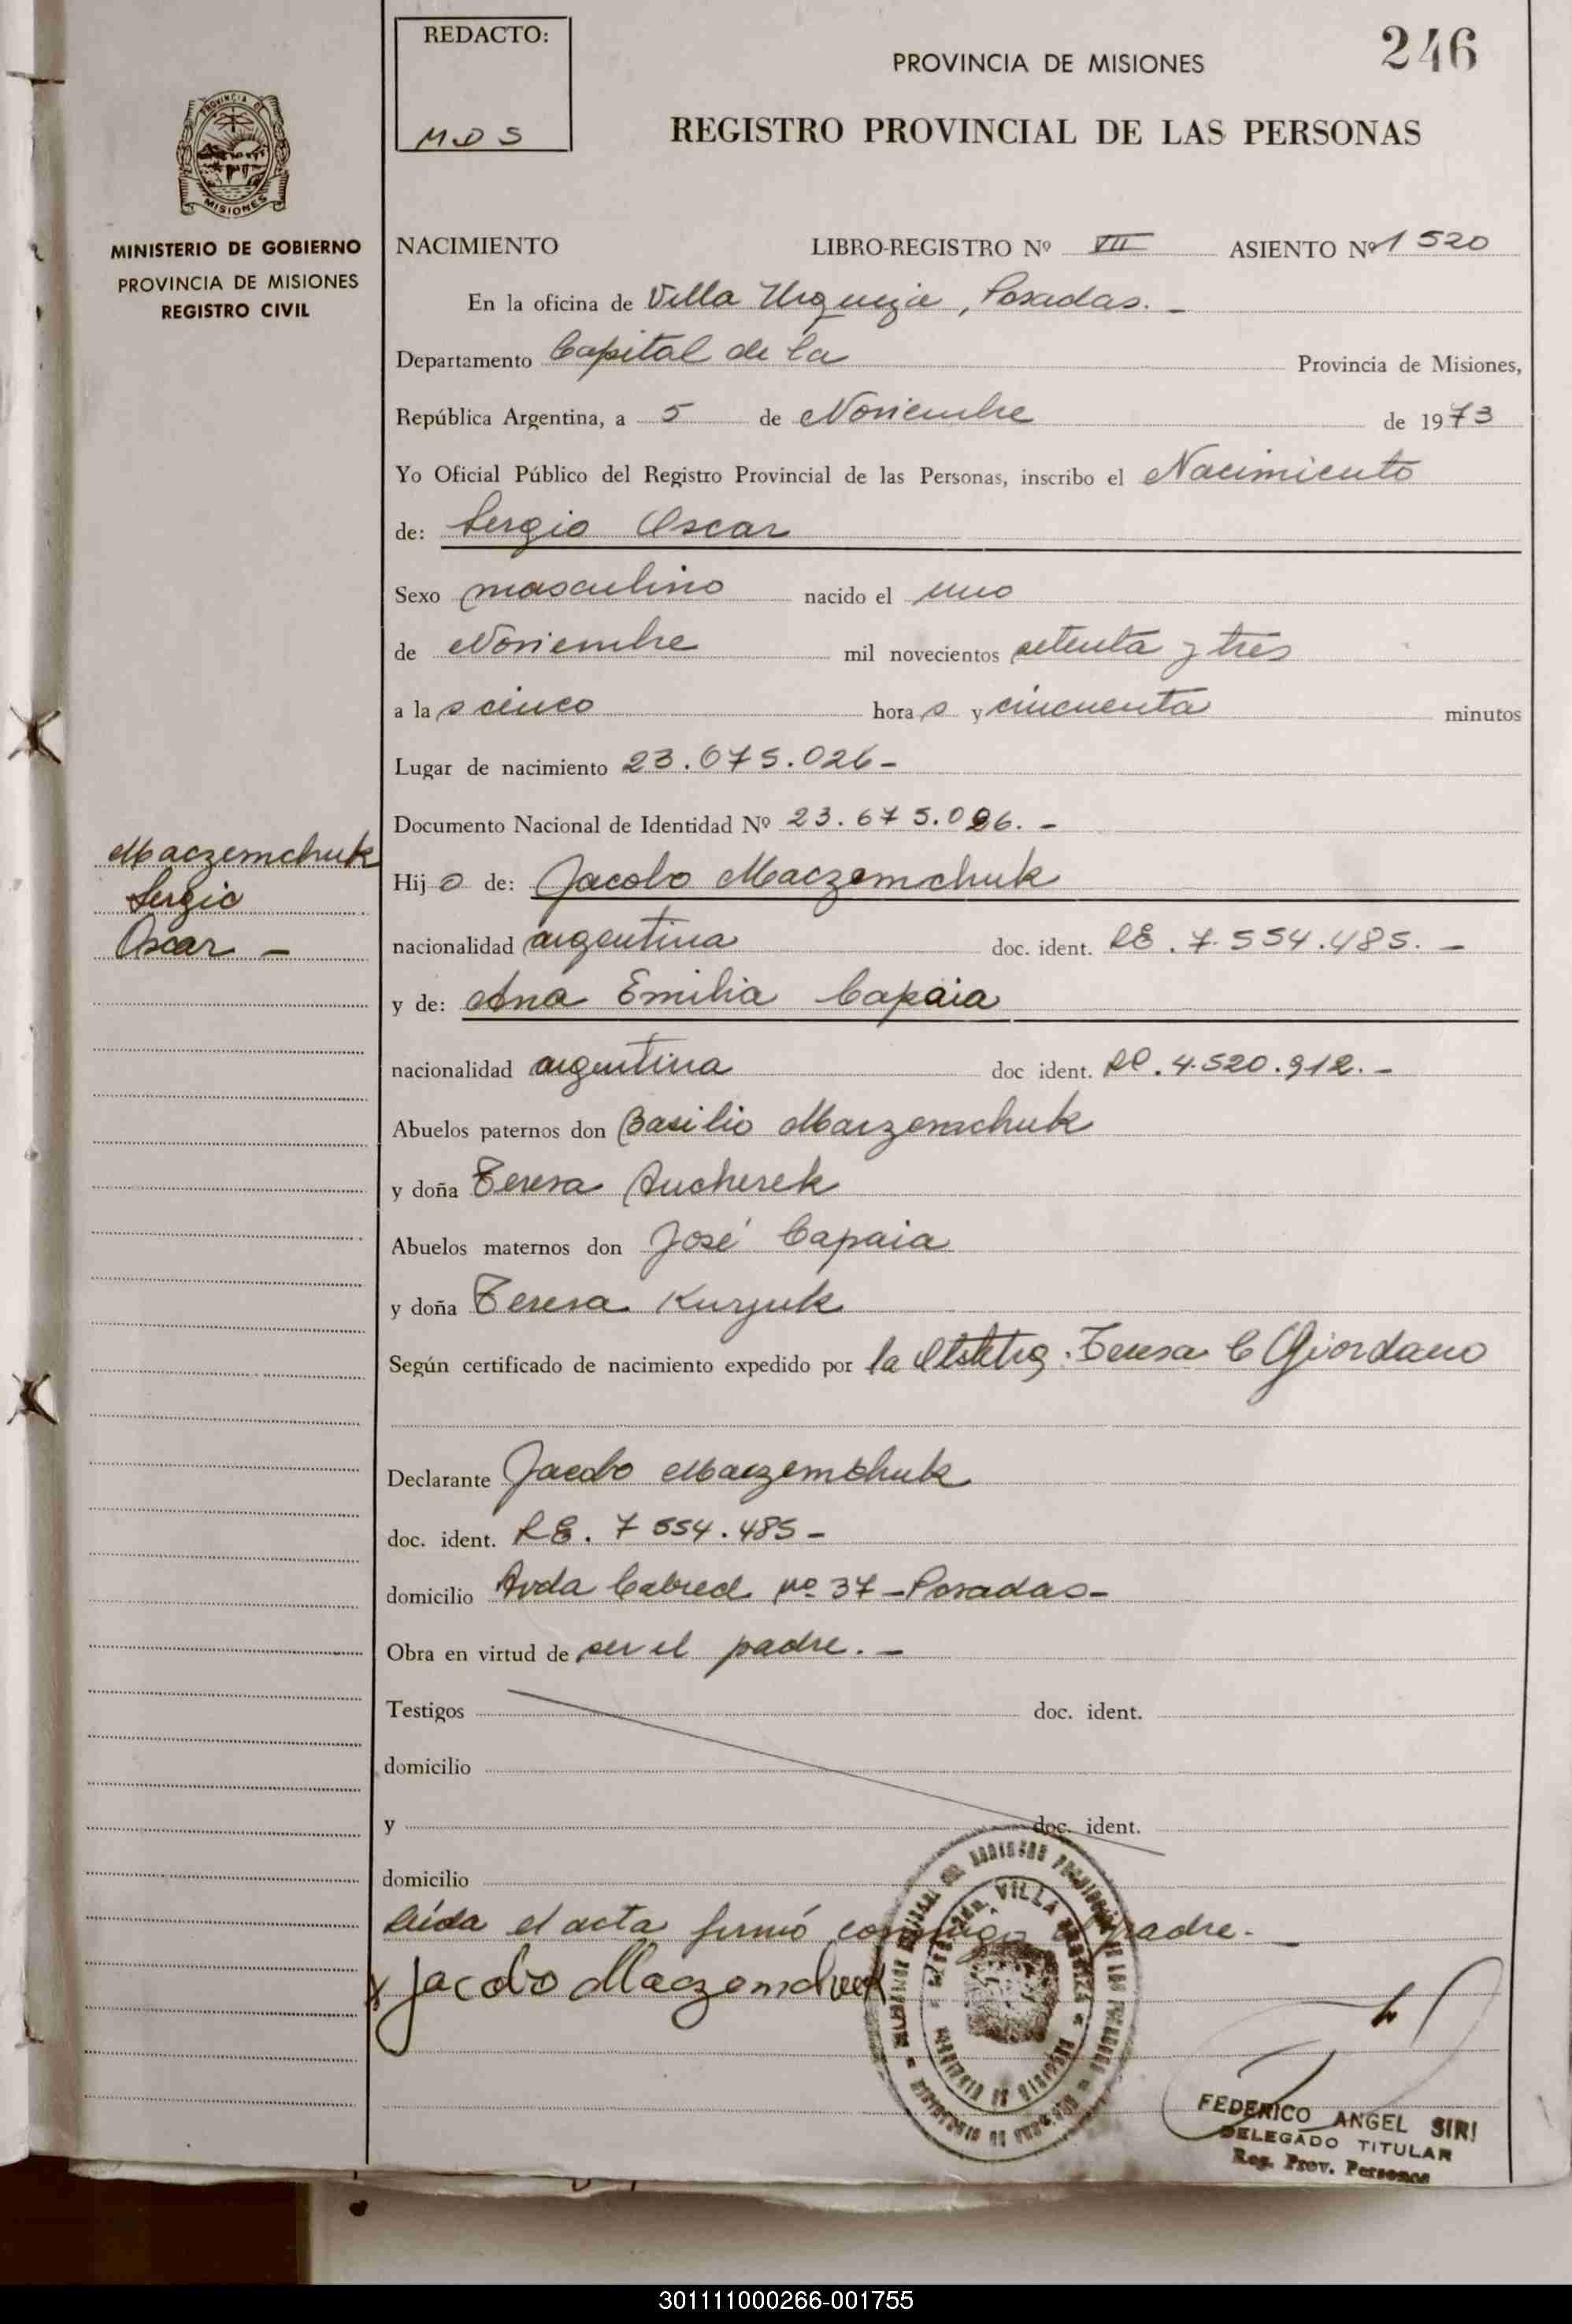 REDACTO:
MDS
PROVINCIA DE MISIONES
246
REGISTRO PROVINCIAL DE LAS PERSONAS
MISIONES
MINISTERIO DE GOBIERNO
PROVINCIA DE MISIONES
REGISTRO CIVIL
NACIMIENTO LIBRO-REGISTRO Nº VII ASIENTO Nº 1520
En la oficina de Villa Urquiza, Posadas. -
Departamento Capital de la Provincia de Misiones,
República Argentina, a 5 de Noviembre de 1973
Yo Oficial Público del Registro Provincial de las Personas, inscribo el Nacimiento
de: Sergio Oscar
Sexo masculino nacido el uno
de Noviembre mil novecientos setenta y tres
a las cinco horas y cincuenta minutos
Lugar de nacimiento 23.675.026-
Documento Nacional de Identidad Nº 23.675.026. -
Maczemchuk
Sergio
Oscar -
Hijo de: Jacobo Maczemchuk
nacionalidad argentina doc. ident. LE. 7.554.485. -
y de: Ana Emilia Capaia
nacionalidad argentina doc ident. LC. 4.520.912. -
Abuelos paternos don Basilio Maczemchuk
y doña Teresa
Abuelos maternos don José Capaia
y doña Teresa
Según certificado de nacimiento expedido por la Teresa C Giordano
Declarante Jacobo Maczemchuk
doc. ident. LE. 7 554.485-
domicilio Avda Cabred nº 37-Posadas-
Obra en virtud de ser el padre. -
Testigos doc. ident.
domicilio
y doc. ident.
domicilio
Leída el acta firmó conmigo el padre. -
x Jacobo Maczemchuk
VILLA
FEDERICO ANGEL SIRI
DELEGADO TITULAR
Reg. Prov. Personas
301111000266-001755